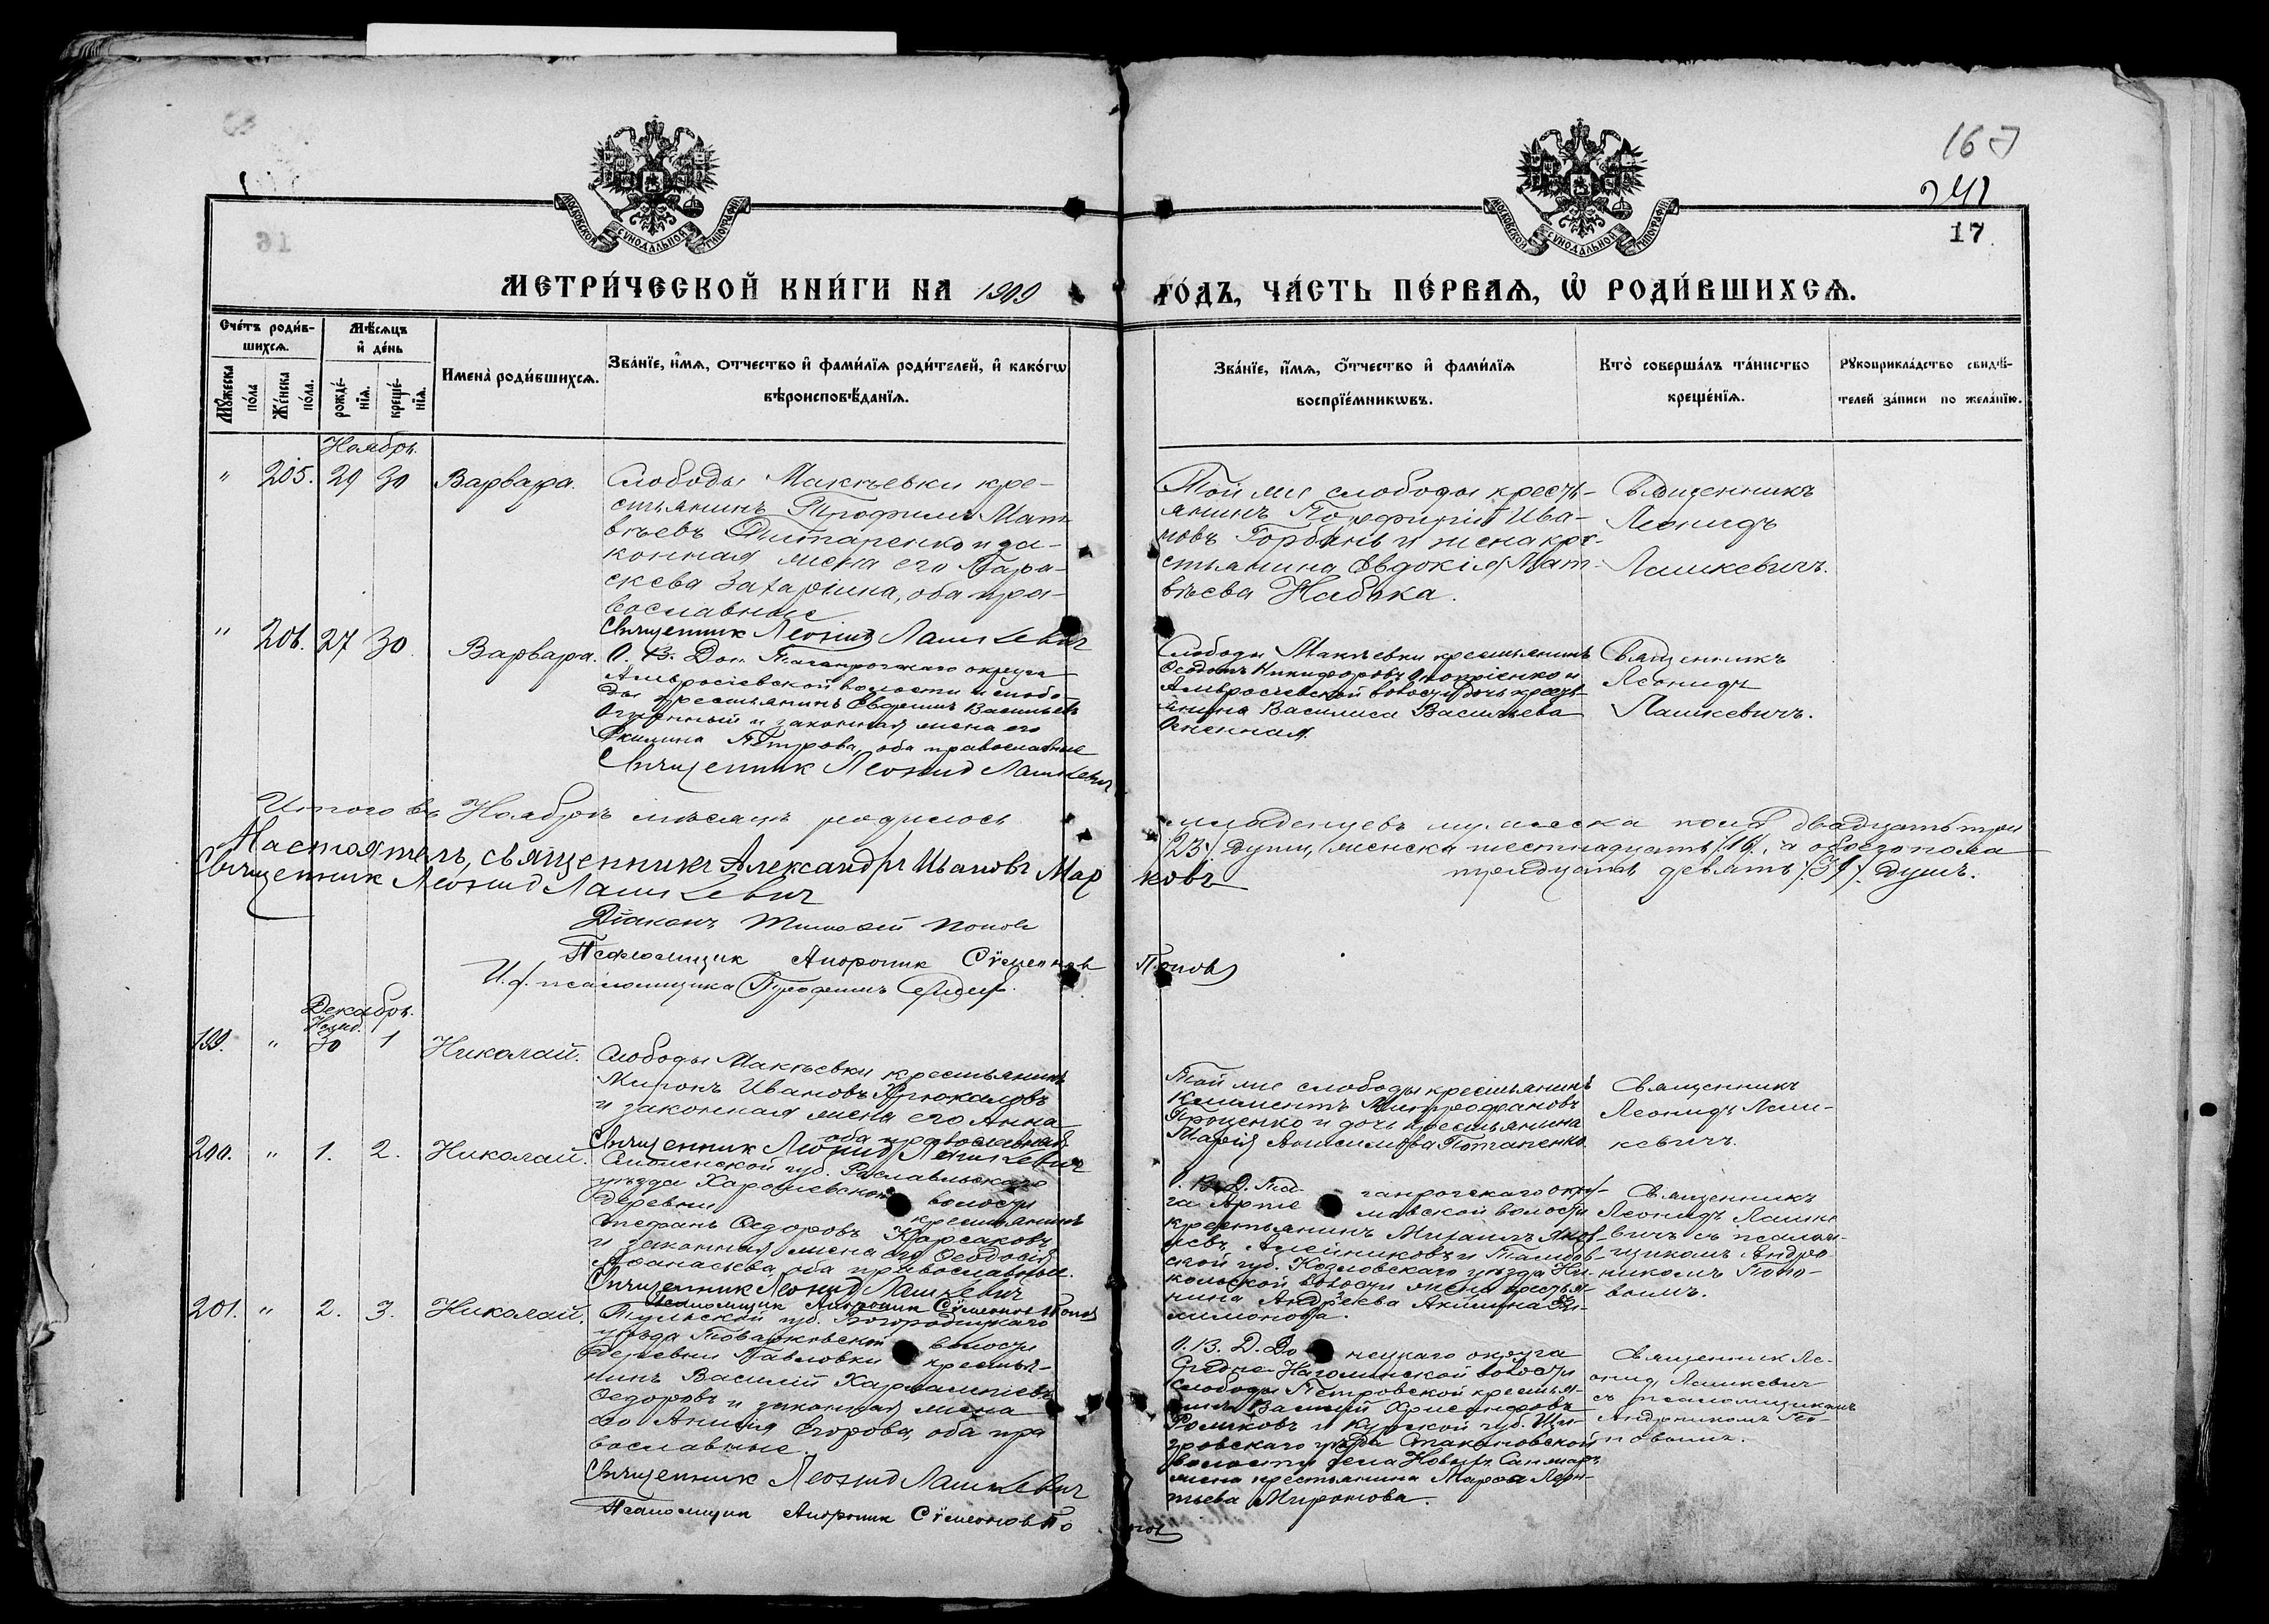 167
241
17
31
МОСКОВСКОЙ СѴНОДАЛЬНОЙ ТИПОГРАФІИ
МОСКОВСКОЙ СѴНОДАЛЬНОЙ ТИПОГРАФІИ
МЕТРИ́ЧЕСКОЙ КНИ́ГИ НА 1909 ГО́ДЪ, ЧА́СТЬ ПЕ́РВАѦ, Ѡ҆ РОДИ́ВШИХСѦ.
Сче́тъ роди́в-
шихсѧ.
Мꙋ́жеска по́ла
Же́нска по́ла.
Мѣ́сѧцъ
и҆ де́нь
рожде́-
нїѧ.
креще́-
нїѧ.
Имена̀ роди́вшихсѧ.
Зва́нїе, и҆́мѧ, ѻ҆́тчество и҆ фами́лїѧ роди́телей, и҆ како́гѡ
вѣроисповѣ́данїѧ.
Зва́нїе, и҆́мѧ, ѻ҆́тчество и҆ фами́лїѧ
воспрїе́мникѡвъ.
Кто̀ соверша́лъ та́инство
креще́нїѧ.
Рꙋкоприкла́дство свидѣ́-
телей за́писи по жела́нїю.
Ноябрь.
" 205. 29 30 Варвара.
Слободы Макѣевки кре-
стьянинъ Трофимъ Мат-
вѣевъ и за-
конная жена его Пара-
скева Захаріина, оба пра-
вославные
Священник Леонид Лашкевич
Той же слободы кресть-
янинъ Порфирій Ива-
новъ Горбань и жена кре-
стьянина Евдокія Мат-
вѣева Набока.
Священникъ
Леонидъ
Лашкевичъ.
" 206. 27 30. Варвара.
О. В. Дон. Таганрогскаго округа
Амвросіевской волости и слобо-
ды крестьянинъ Евфимій Васильевъ
Огненный и законная жена его
Акилина Петрова, оба православные
Священник Леонид Лашкевич
Слободы Макѣевки крестьянинъ
Ѳеодотъ Никифоровъ и
Амвросіевской волости дочь кресть-
янина Василиса Васильева
Огненная.
Священникъ
Леонидъ
Лашкевичъ.
Итого въ Ноябрѣ мѣсяцѣ родилось младенцевъ мужеска пола двадцать три
/23/ души, женска шестнадцать /16/, а обоего пола
тридцать девять /39/ душъ.
Настоятель, священникъ Александръ Ивановъ Марковъ
Священник Леонид Лашкевич
Діаконъ Тимоѳей Попов
Псаломщик Андроник Сѵмеонов Попов
И. д. псаломщика Трофимъ
Декабрь.
Нояб.
199. " 30 1 Николай.
Слободы Макѣевки крестьянинъ
Миронъ Ивановъ Крюкаловъ
и законная жена его Анна
оба православные
Священник Леонид Лашкевич
Той же слободы крестьянинъ
Климентъ Митрофановъ
Проценко и дочь крестьянина
Марія Анисимова Потапенко.
Священникъ
Леонидъ Лаш-
кевичъ.
200. " 1. 2. Николай.
Смоленской губ. Рославльскаго
уѣзда Харошевской волости
деревни крестьянинъ
Стефанъ Ѳедоровъ Карсаковъ
и законная жена его Ѳеодосія
Аѳанасьева, оба православные.
Священник Леонид Лашкевич
Псаломщик Андроник Сѵмеонов Попов
О. В. Д. Таганрогскаго окру-
га Артемовской волости
крестьянинъ Михаилъ Яков-
левъ Алейниковъ и Тамбов-
ской губ. Козловскаго уѣзда Ни-
кольской волости жена крестья-
нина Андреева Акилина Фи-
лимонова.
Священникъ
Леонидъ Лашке-
вичъ съ псалом-
щикомъ Андро-
никомъ Попо-
вымъ.
201. " 2. 3. Николай.
Тульской губ. Богородицкаго
уѣзда Товарковской волости
деревни Павловки крестья-
нинъ Василій Харлампіевъ
Ѳедоровъ и законная жена
его Анисія Егорова, оба пра-
вославные.
Священник Леонид Лашкевич
Псаломщик Андроник Сѵмеонов Попов
О. В. Д. Донецкаго округа
Средне-Нагольинской волости
слободы Петровской крестья-
нинъ Василій Хрисанфовъ
Ромиковъ и Курской губ. Щи-
гровскаго уѣзда Стакановской
волости села Новых
жена крестьянина Марѳа Леон-
тьева Миронова.
Священник Ле-
онид Лашкевич
съ псаломщикомъ
Андроникомъ По-
повымъ.